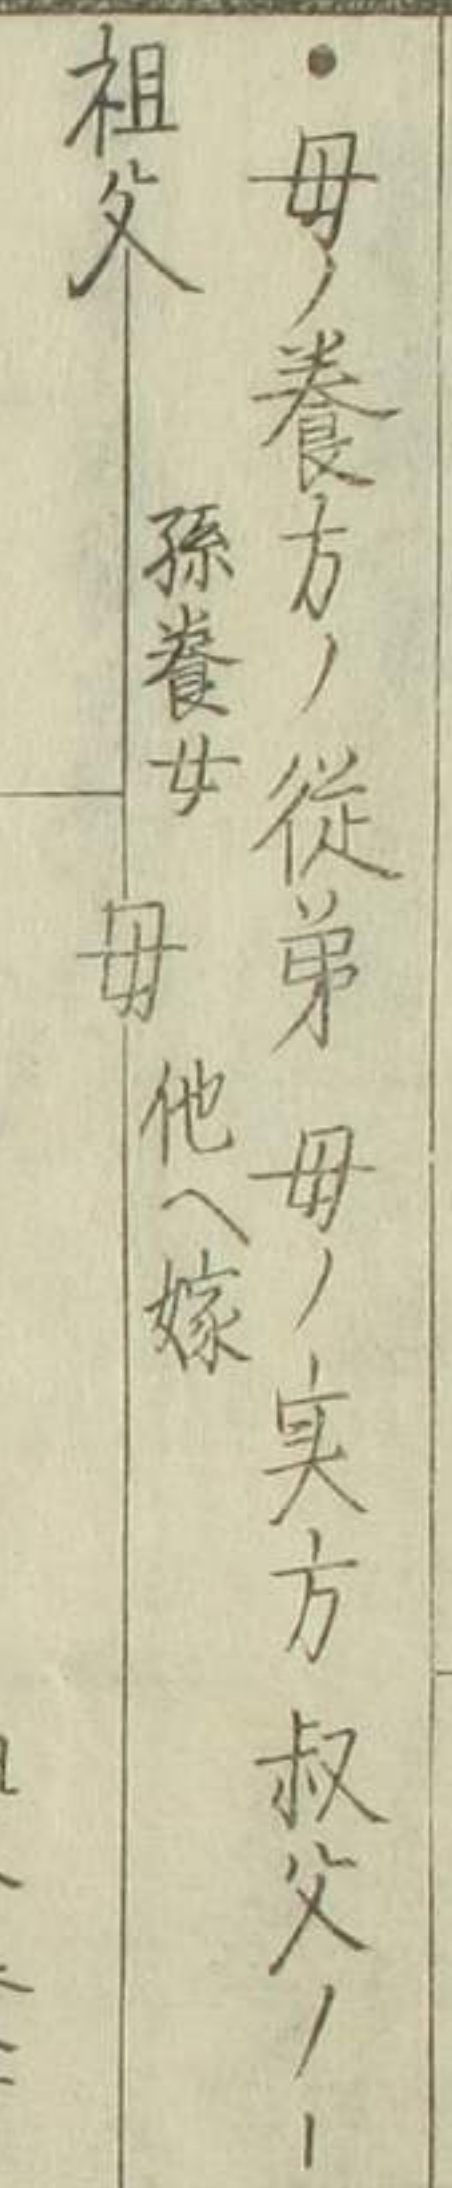 ・母ノ養方ノ従弟 母ノ実方 叔父ノ
祖父 孫養女 母 他ヘ嫁